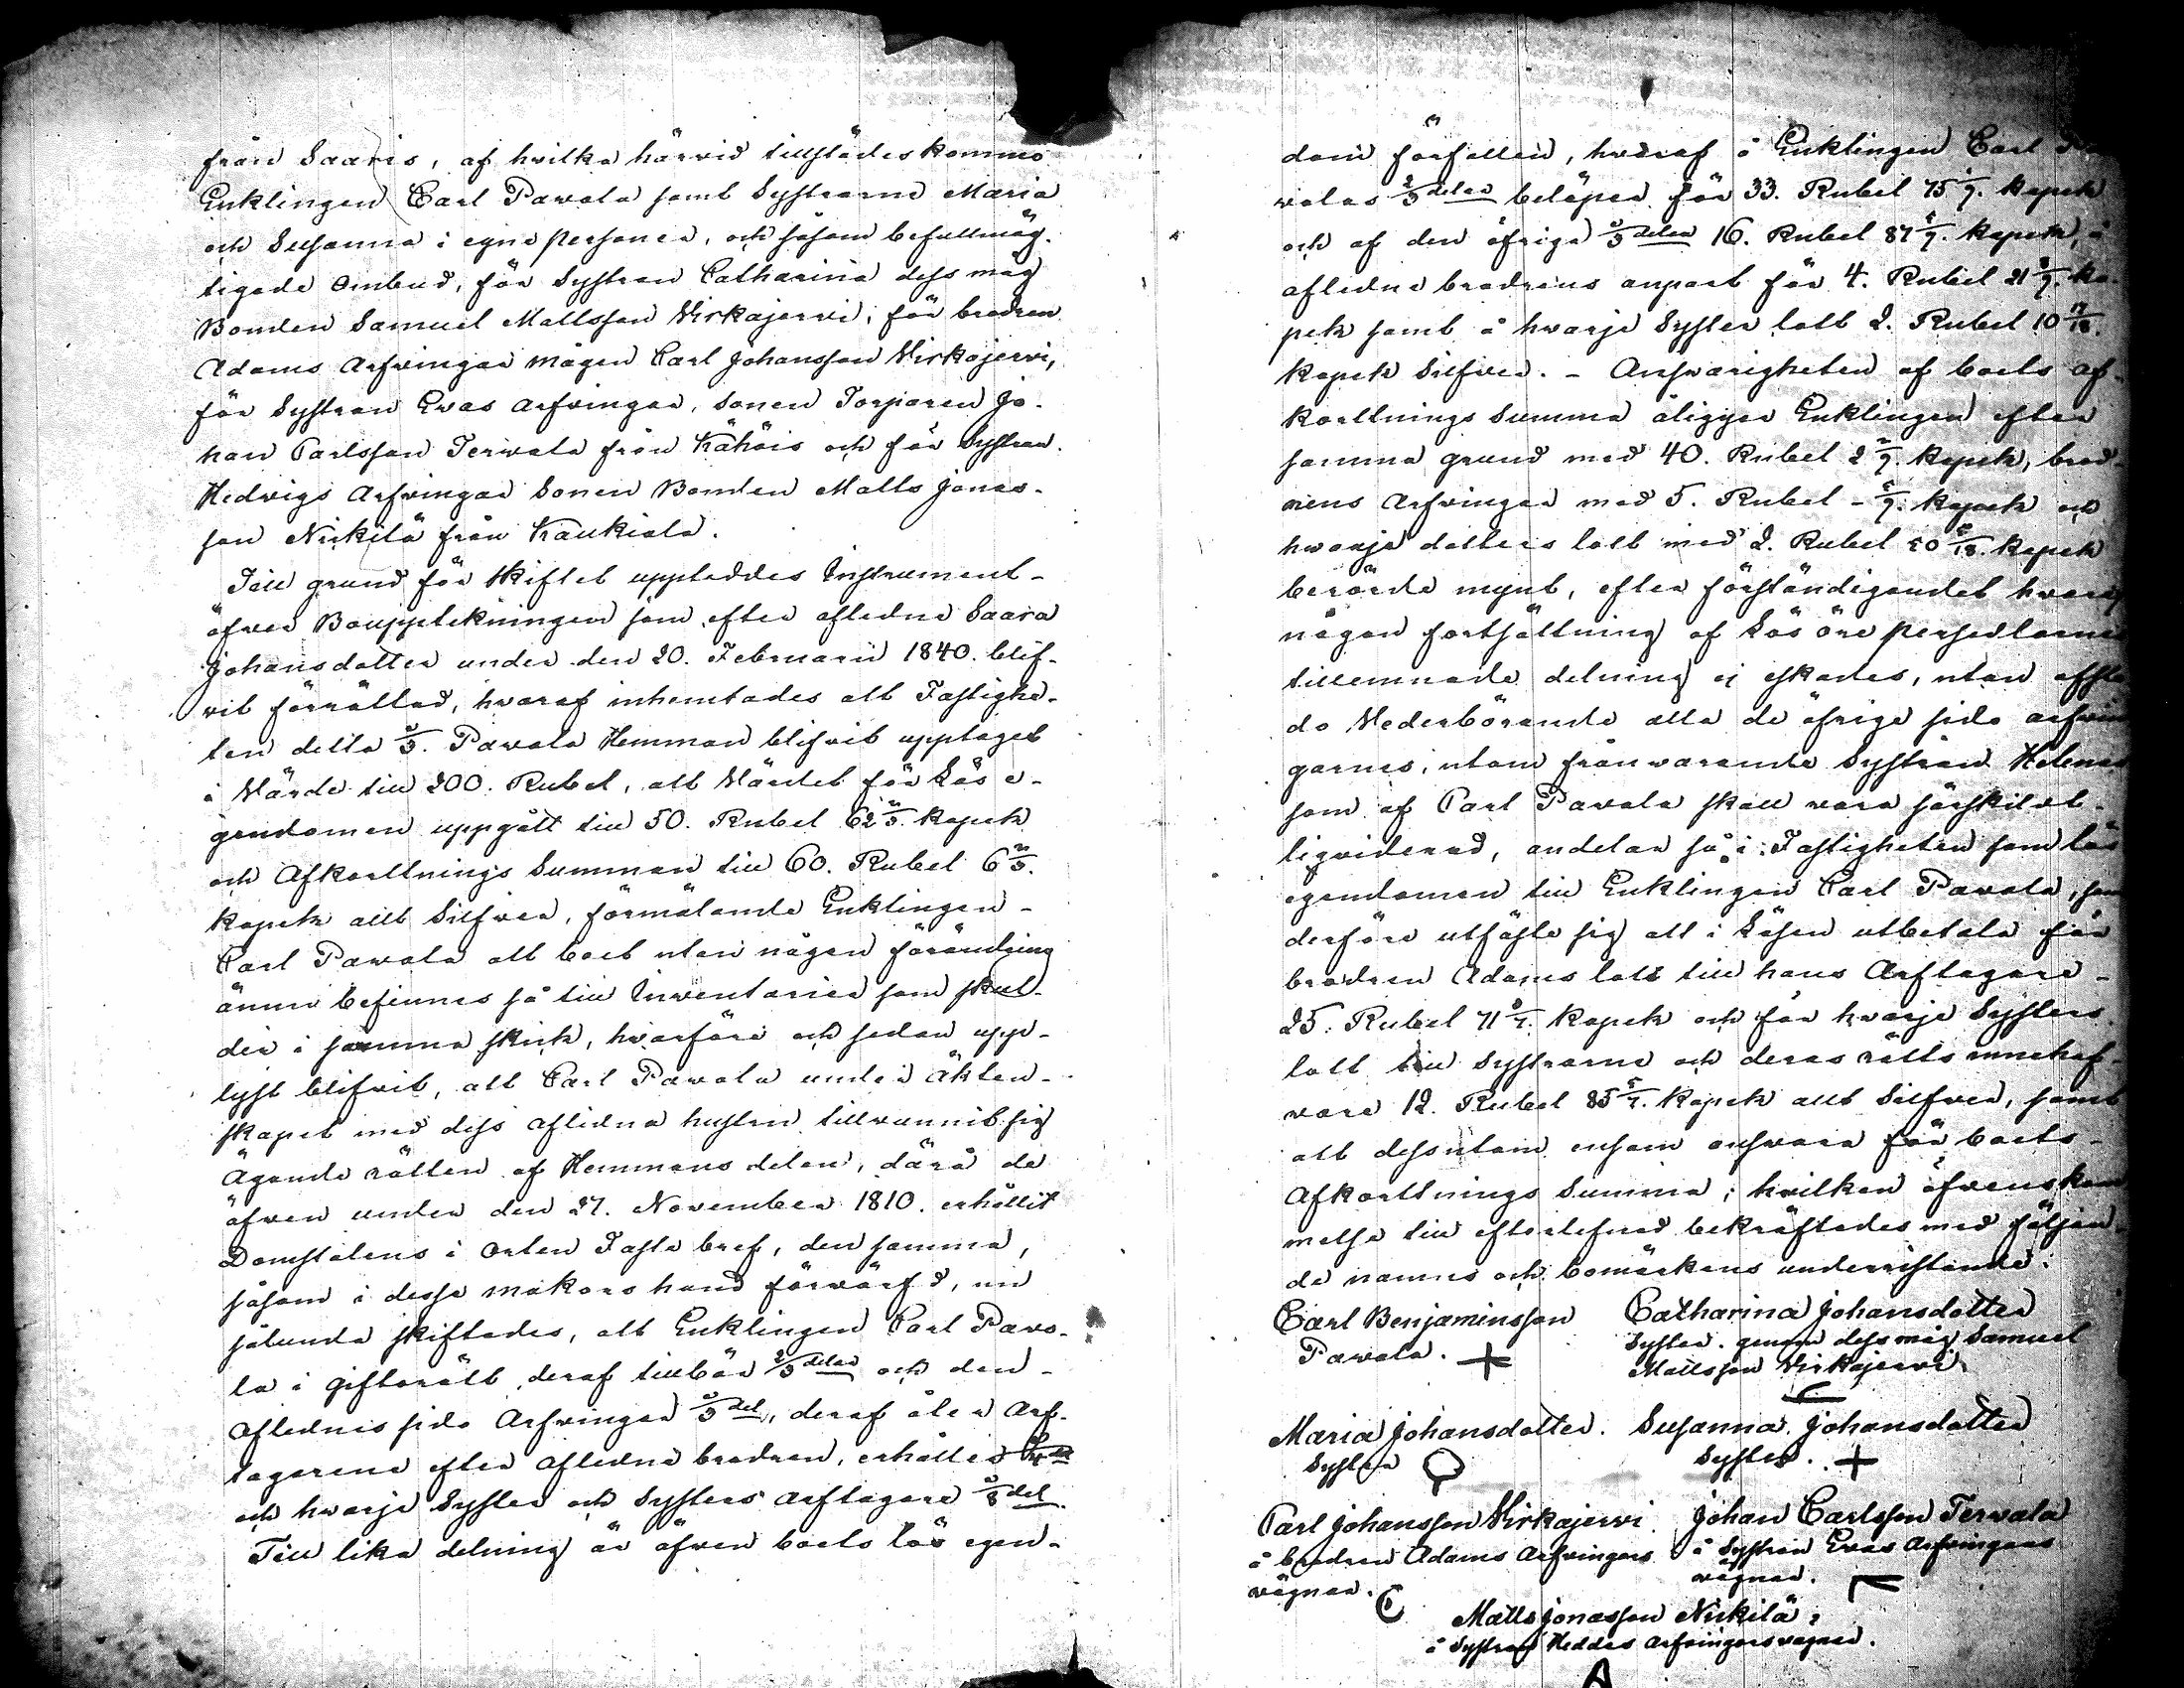 från Saaris, af hvilka härvid tillstädeskommo
Enklingen Carl Pawola samt Systrarne Maria
och Susanna i egne personer, och såsom befullmäg-
tigade Ombud, för Systran Catharina dess måg
Bonden Samuel Mattsson Wirkajerwi, för brodren
Adams Arfvingar mågen Carl Johansson Wirkajerwi,
för Systran Evas arfvingar, sonen Torparen Jo-
han Carlsson Terwala från Kähöis och för Systran
Hedvigs Arfvingar Sonen Bonden Matts Jonas-
son Nickilä från Kaukiala.
Till grund för skiftet uppteddes Instrument
öfver Bouppteckningen som efter aflidne Saara
Johansdotter under den 20. Februarii 1840. blif-
vit förrättad, hvaraf inhemtades att Fastighe-
ten detta 1/3. Pawola Hemman blifvit upptaget
i Wärde till 200. Rubel, att Wärdet för Lös e-
gendomen uppgått till 50. Rubel 62 2/3. kopek
och Afkorttnings Summan till 60. Rubel 6 2/3.
kopek allt Silfver, förmälande Enklingen
Carl Pawola att boet utan någon förändring
ännu befinnes så till Inventarier som skul-
der i samma skick, hvarföre och sedan upp-
lyst blifvit, att Carl Pawola under Äkten-
skapet med dess aflidna hustru tillvunnit sig
Äganderätten af Hemmans delen, därå de
äfven under den 27. November 1810. erhållit
Domstolens i Orten Fasta bref, den samma,
såsom i desse makars hand förwärfd, nu
sålunda skiftades, att Enklingen Carl Pawo-
la i giftorätt deraf tillhör 2/3 delar och den
Aflednes sido Arfvingar 1/3 del, deraf åter Arf-
tagarene efter Afledne brodren, erhåller 1/4 del
och hvarje Syster och Systers arftagare 1/8 del.
Till lika delning är äfven boets lös egen-
dom förfallen, hvaraf å Enklingen Carl Pa
wolas 2/3 delar belöper för 33. Rubel 75 1/9. kopek
och af den öfriga 1/3 delen 16. Rubel 87 5/9. kopek, å
aflidne brodrens anpart för 4. Rubel 21 8/9. ko-
pek samt å hvarje Syster lott 2. Rubel 10 17/18.
kopek Silfver. - Answarigheten af boets af-
korttnings Summa åligger Enklingen efter
samma grund med 40. Rubel 2/9. kopek, brod-
rens Arfvingar med 5. Rubel - 5/9. kopek och
hwarje dotters lott med 2. Rubel 50 5/18. kopek
berörde mynt, efter förständigandet hvar
någon fortsättning af Lösöre persedlarne
tillemnade delning ej eskades, utan afsto
do Wederbörande alla de öfrige sido arfvin
garnes, utom frånvarande Systran Helena
som af Carl Pawola skall vara särskilt
ligviderad, andelar så i Fastigheten som lös
egendomen till Enklingen Carl Pawola, som
derföre utfäste sig att i Lösen utbetala för
brodren Adams lott till hans Arftagare
25. Rubel 71 3/7. kopek och för hvarje Systers
lott till Systrarne och deras rätts innehaf-
vare 12. Rubel 85 5/7. kopek allt Silfver, samt
att dessutom ensam answara för boets
Afkorttnings Summa, hvilken öfvenskom
melse till efterlefnad bekräftades med följan-
de namns och bomärkens underristande.
Carl Benjaminsson Catharina Johansdotter
Pawola. + Syster. genom dess måg Samuel
Mattsson Wirkajerwi
Maria Johansdotter. Susanna Johansdotter
Syster Syster. +
Carl Johansson Wirkajerwi. Johan Carlsson Terwala
å brodren Adams Arfvingars å Systran Evas Arfvingars
vägnar. vägnar.
Matts Jonasson Nickilä,
å Systran Heddas Arfvingars vägnar.